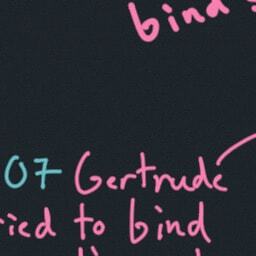 bind
07 Gertrude
ried to bind